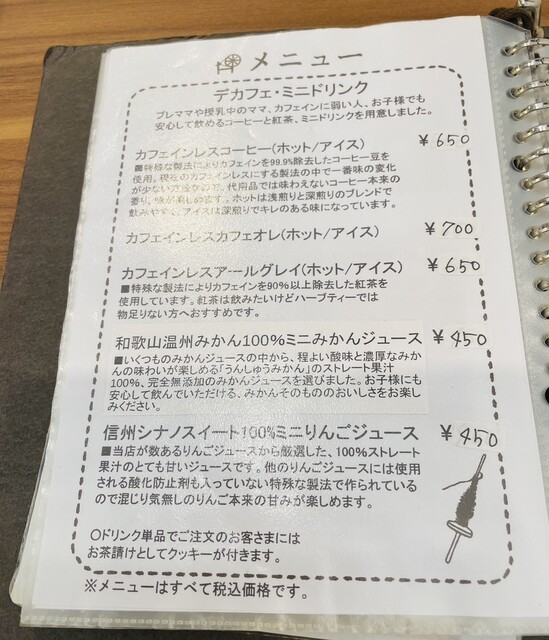 メニュー
デカフェ・ミニドリンク
プレママや授乳中のママ、カフェインに弱い人、お子様でも
安心して飲めるコーヒーと紅茶、ミニドリンクを用意しました。
カフェインレスコーヒー(ホット/アイス) ¥650
■特殊な製法によりカフェインを99.9%除去したコーヒー豆を
使用。現在のカフェインレスにする製法の中で一番味の変化
が少ない方法なので、代用品では味わえないコーヒー本来の
香り、味が楽しめます。ホットは浅煎りと深煎りのブレンドで
飲みやすく、アイスは深煎りでキレのある味になっています。
カフェインレスカフェオレ(ホット/アイス) ¥700
カフェインレスアールグレイ(ホット/アイス) ¥650
■特殊な製法によりカフェインを90%以上除去した紅茶を
使用しています。紅茶は飲みたいけどハーブティーでは
物足りない方へおすすめです。
和歌山温州みかん100%ミニみかんジュース ¥450
■いくつものみかんジュースの中から、程よい酸味と濃厚なみか
んの味わいが楽しめる「うんしゅうみかん」のストレート果汁
100%、完全無添加のみかんジュースを選びました。お子様にも
安心して飲んでいただける、みかんそのもののおいしさをお楽し
みください。
信州シナノスイート100%ミニりんごジュース ¥450
■当店が数あるりんごジュースから厳選した、100%ストレート
果汁のとても甘いジュースです。他のりんごジュースには使用
される酸化防止剤も入っていない特殊な製法で作られている
ので混じり気無しのりんご本来の甘みが楽しめます。
○ドリンク単品でご注文のお客さまには
お茶請けとしてクッキーが付きます。
※メニューはすべて税込価格です。